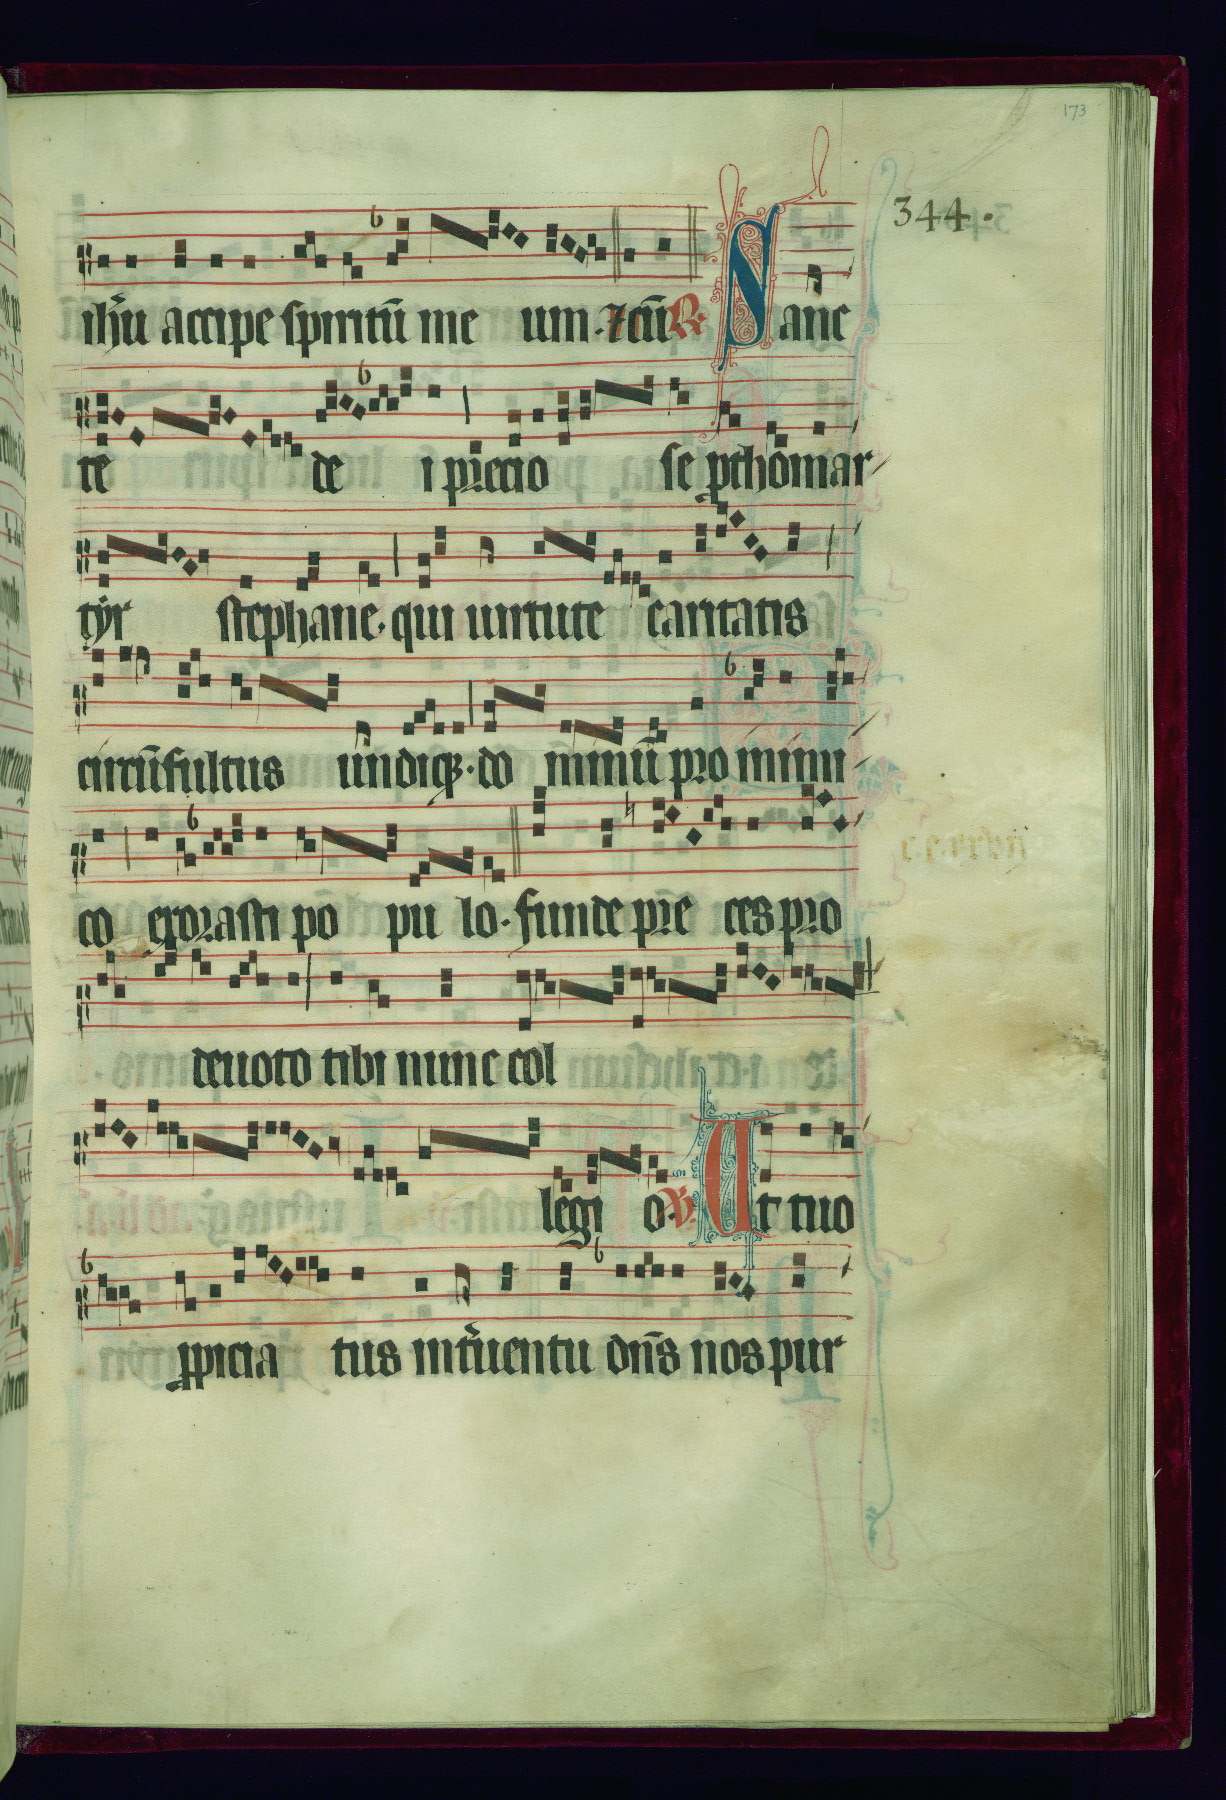 173
344.
ih̄u accipe spiritū me um. ⁊cū R. Sanc
te de i p̄cio se pthomar
tyr stephane. qui uirtute caritatis
circūfultus undiqꝫ. do minū pro inimi
co exorasti po pu lo. funde pre ces pro
deuoto tibi nunc col
legi o. V. Ut tuo
ꝓpicia tus int̄uentu dn̄s nos pur